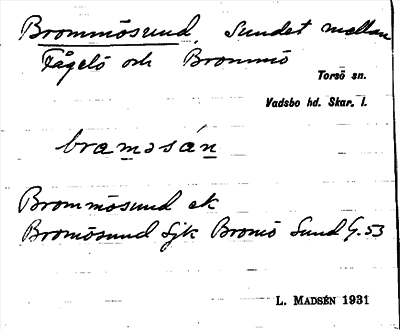 Brommösund, Sundet mellan
Fågelö och Brommö
Torsö sn.
Vadsbo hd. Skar. l.
braməsán
Brommösund ek
Bromösund Sjk Bromö Sund G. 53
L. MADSÉN 1931